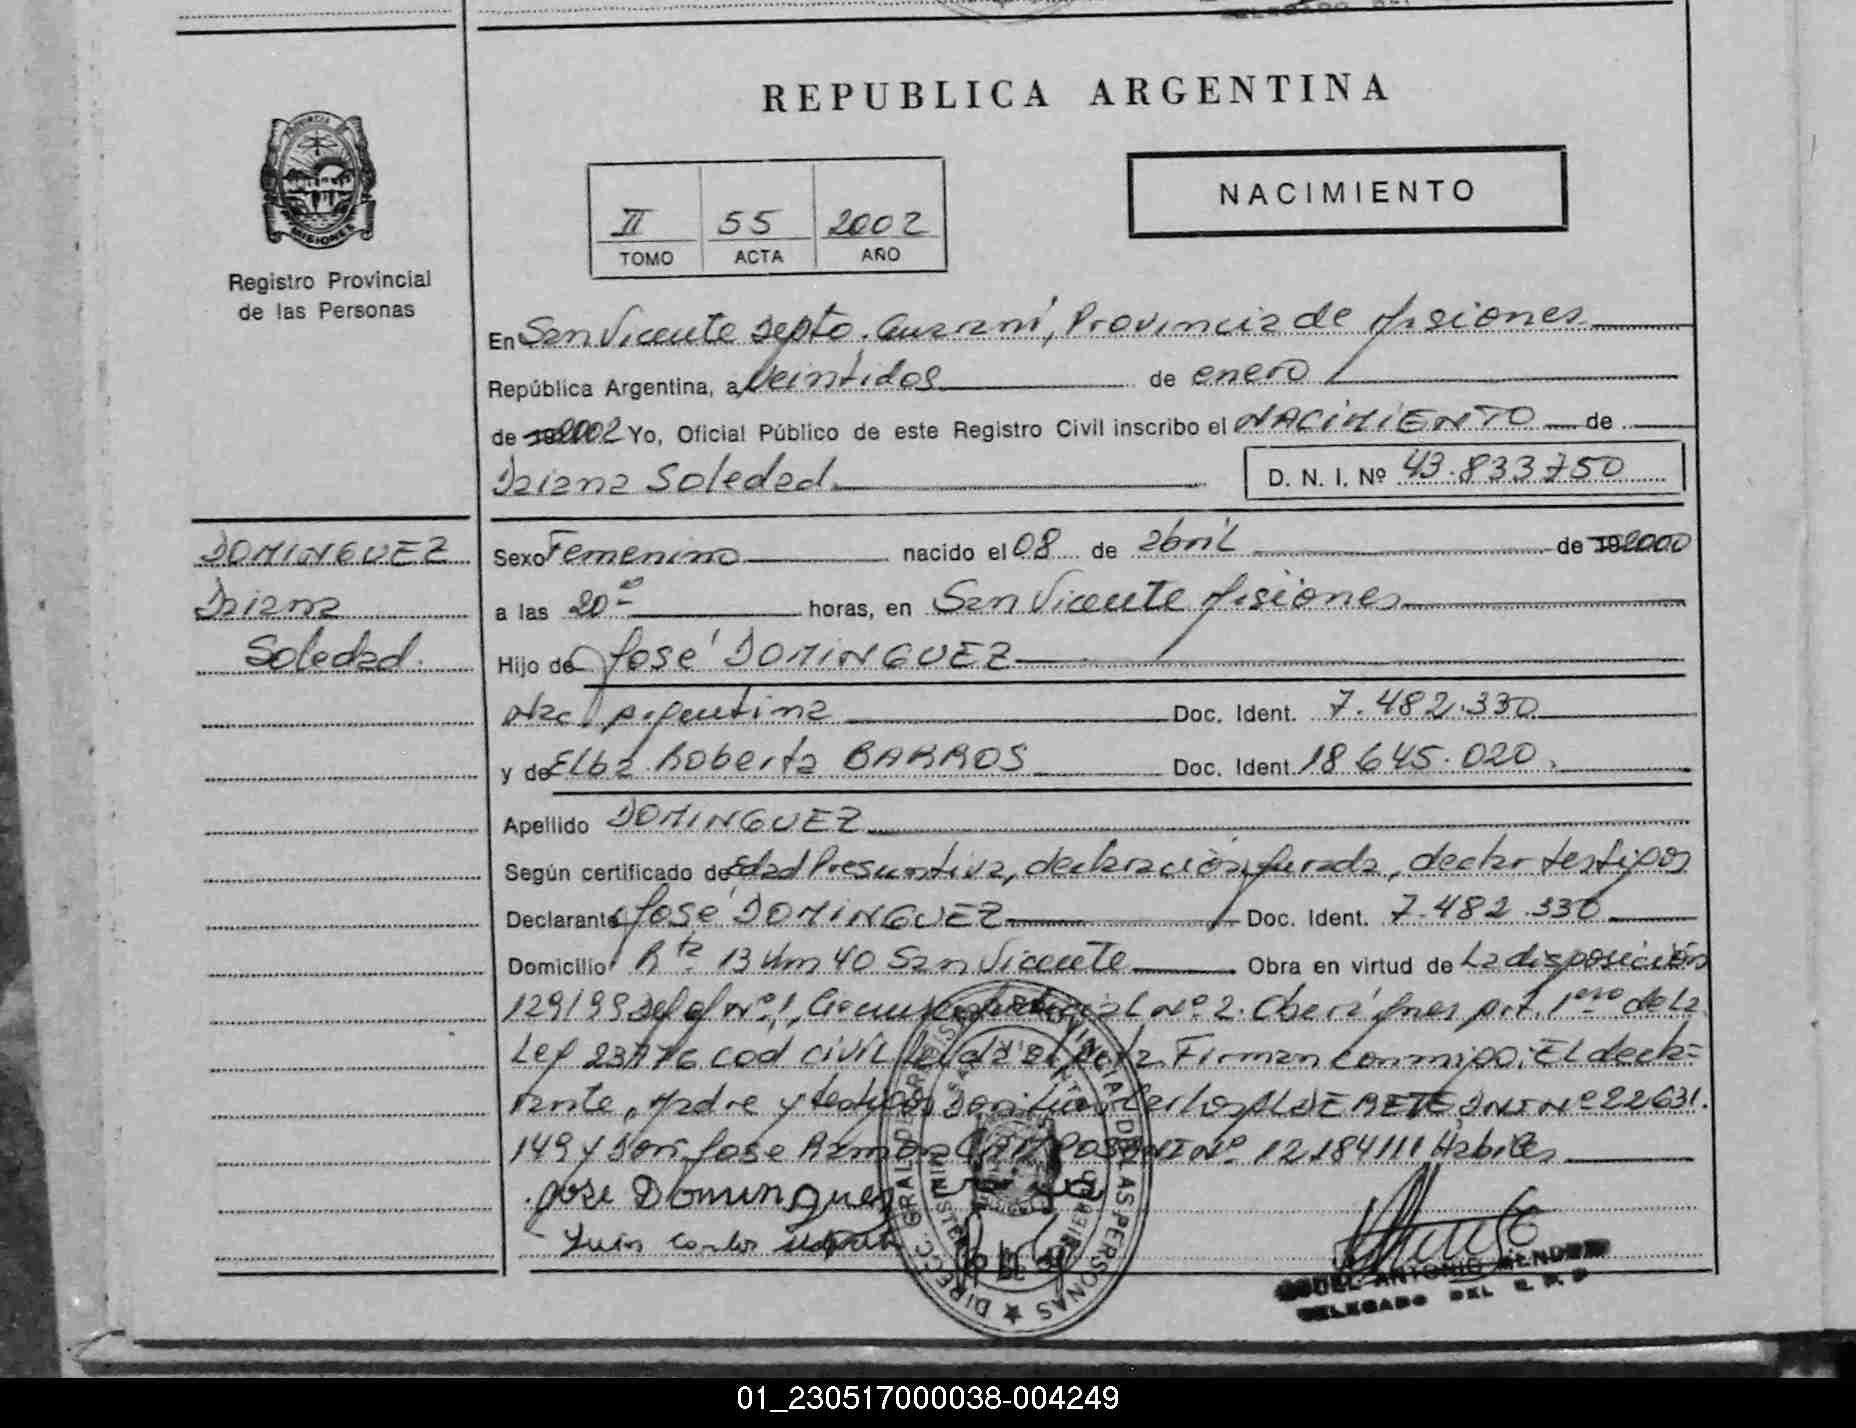 REPUBLICA ARGENTINA
PROVINCIA DE
MISIONES
Registro Provincial
de las Personas
NACIMIENTO
II 55 2002
TOMO ACTA AÑO
En San Vicente Depto. Guaraní, Provincia de Misiones
República Argentina, a Veintidos de enero
de 2002 Yo, Oficial Público de este Registro Civil inscribo el NACIMIENTO de
Daiana Soledad D. N. I. Nº 43.833750
DOMINGUEZ
Daiana
Soledad.
Sexo Femenino nacido el 08 de abril de 2000
a las 20 horas, en San Vicente Misiones
Hijo de José DOMINGUEZ
Nac. Argentina Doc. Ident. 7.482.330
y de Elba Roberta BARROS Doc. Ident 18.645.020.
Apellido DOMINGUEZ
Según certificado de Edad Presuntiva, declaración jurada, declar testigos
Declarante José DOMINGUEZ Doc. Ident. 7.482.330
Domicilio Rta 13 Km 40 San Vicente Obra en virtud de La disposición
129/99 Nº 1, Nº 2. Oberá Mnes art. 1ero de la
Ley 23776 cod civil Leida el acta Firman conmigo: El decla=
rante, Madre y testigos Don Luis Carlos ALDERETE, DNI Nº 22631.
149 y Don Jose Ramon DNI Nº 12184111 Habiles
Jose Dominguez
Luis Carlos
DIRECC. GRAL. DE REGISTRO PROVINCIAL DE LAS PERSONAS
ANTONIO
DELEGADO DEL R. P. P
01_230517000038-004249